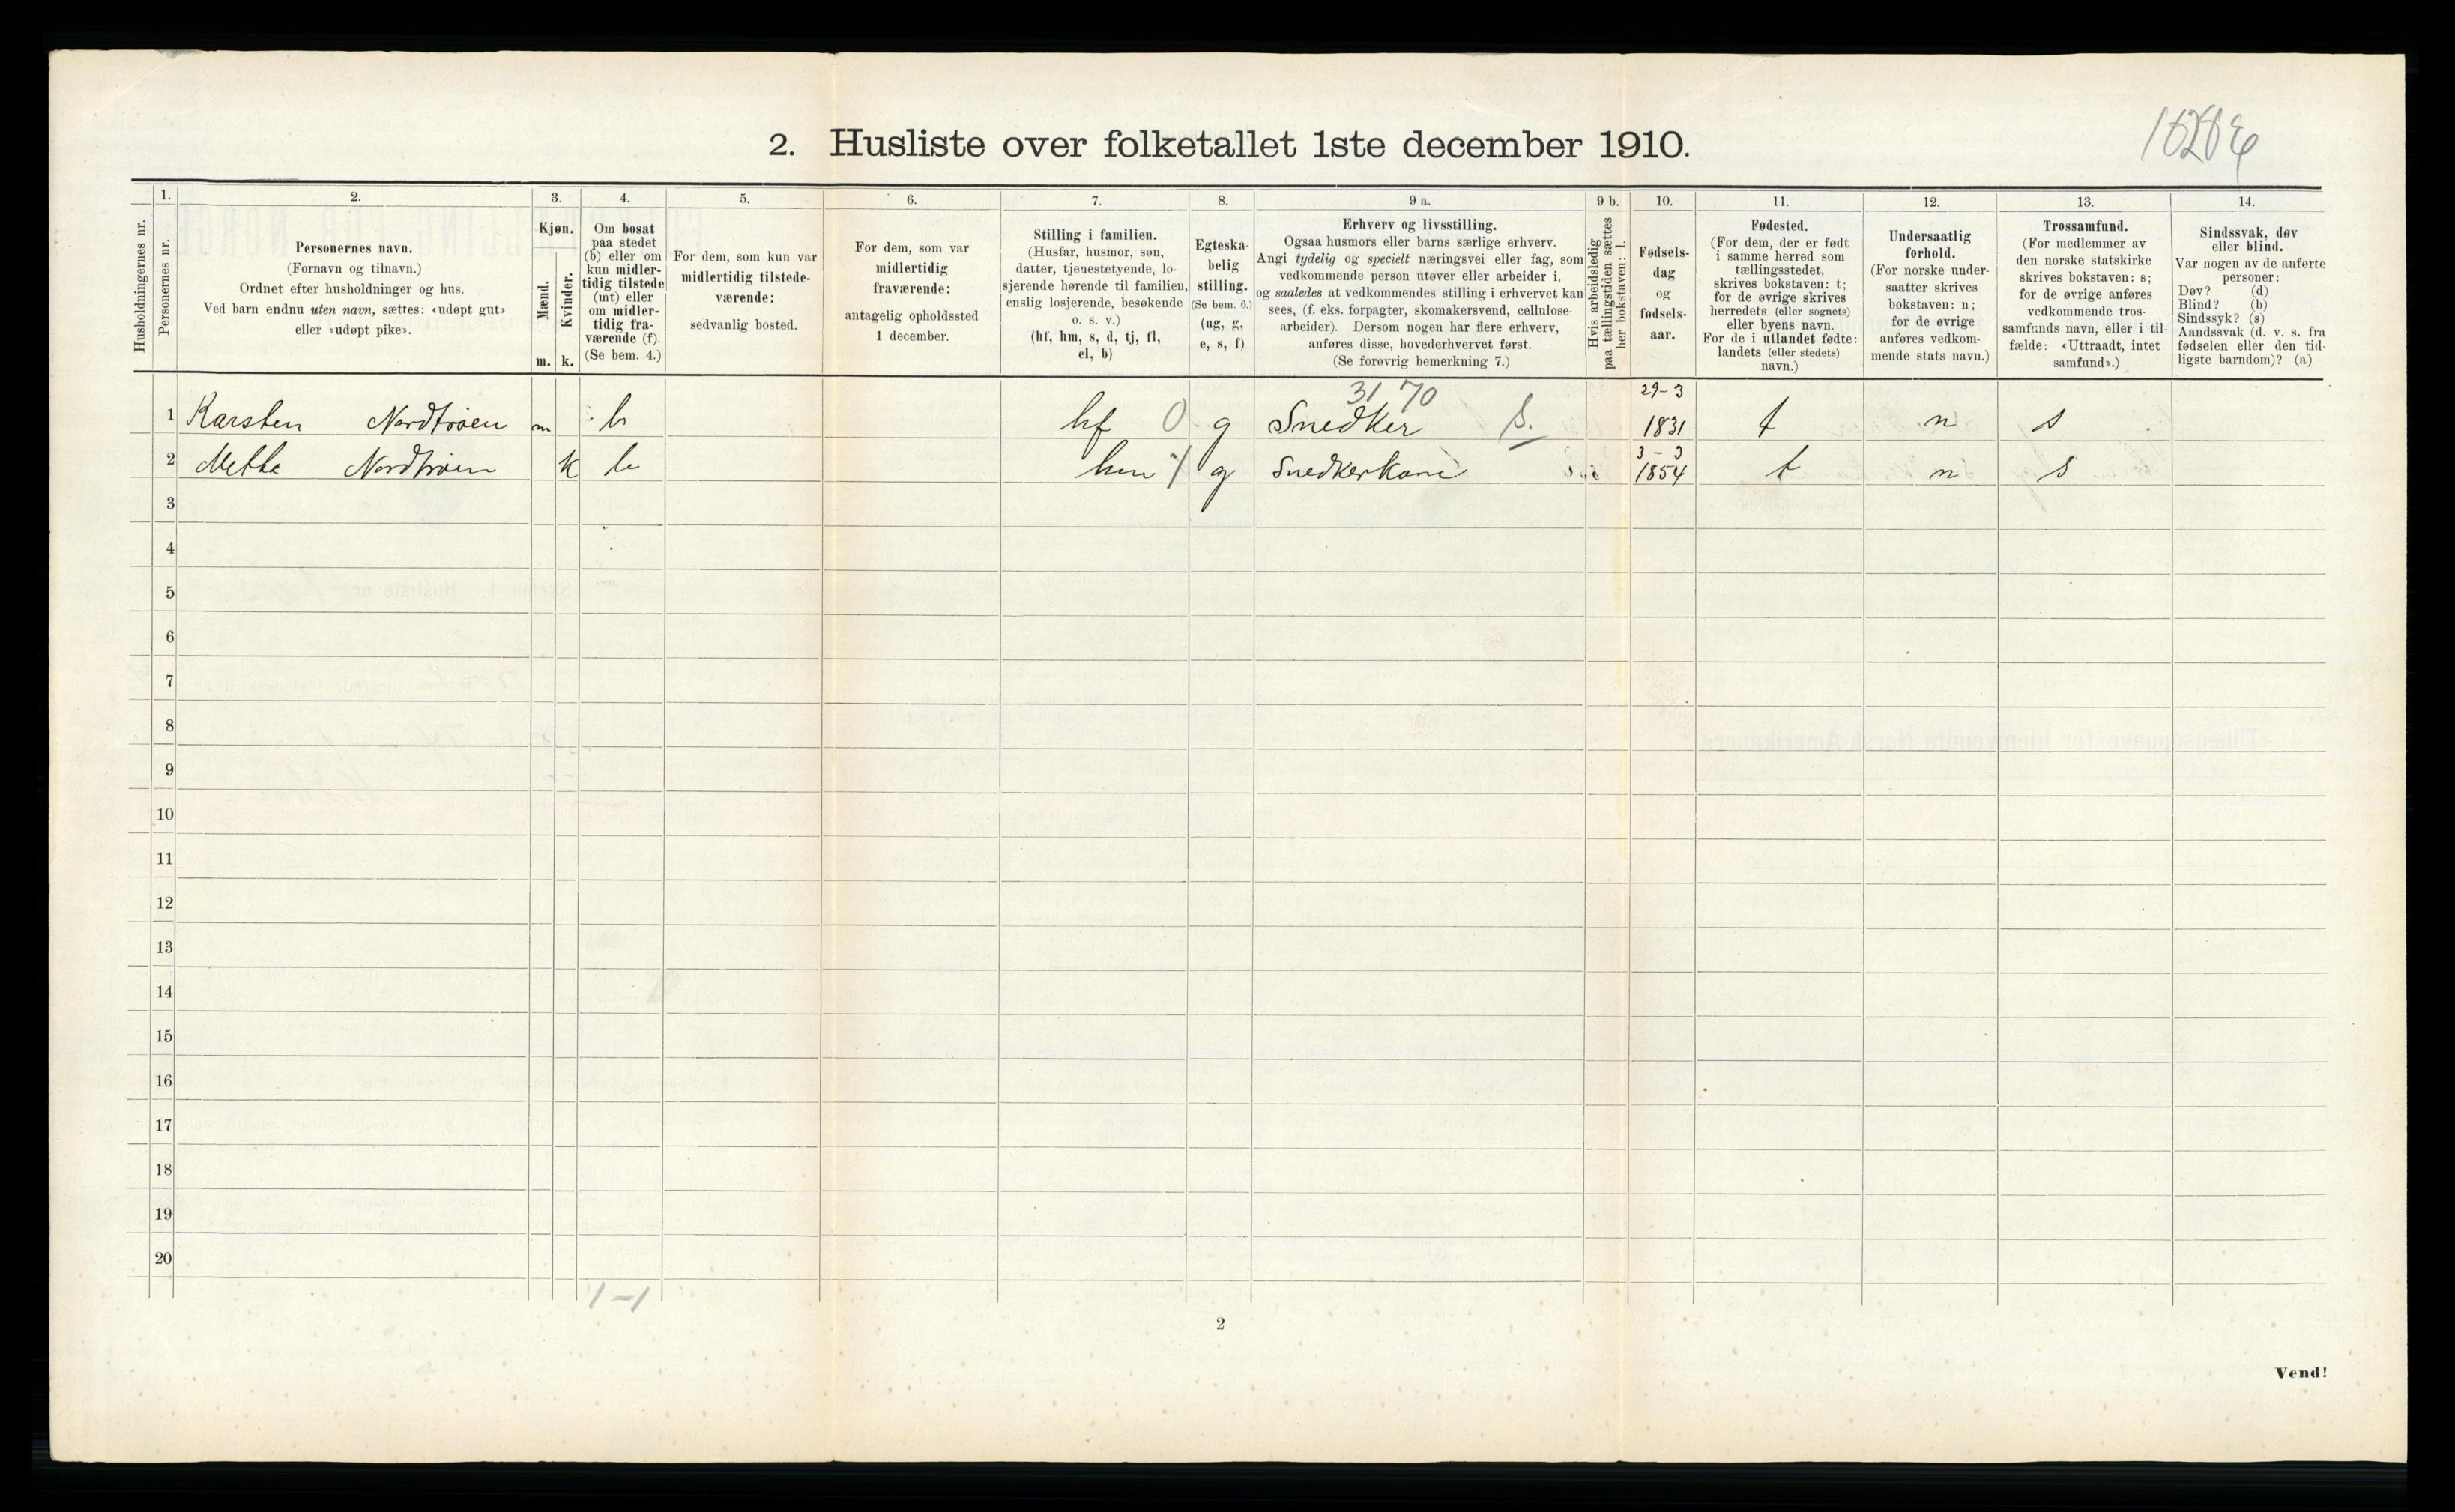 2. Husliste over folketallet 1ste december 1910.
1.
2.
3.
4.
5.
6.
7.
8.
9 a.
9 b.
10.
11.
12.
13.
14.
Husholdningernes nr.
Personernes nr.
Personernes navn.
(Fornavn og tilnavn.)
Ordnet efter husholdninger og hus.
Ved barn endnu uten navn, sættes: «udøpt gut»
eller «udøpt pike».
Kjøn.
Mænd.
Kvinder.
m. k.
Om bosat
paa stedet
(b) eller om
kun midler-
tidig tilstede
(mt) eller
om midler-
tidig fra-
værende (f).
(Se bem. 4.)
For dem, som kun var
midlertidig tilstede-
værende:
sedvanlig bosted.
For dem, som var
midlertidig
fraværende:
antagelig opholdssted
1 december.
Stilling i familien.
(Husfar, husmor, søn,
datter, tjenestetyende, lo-
sjerende hørende til familien,
enslig losjerende, besøkende
o. s. v.)
(hf, hm, s, d, tj, fl,
el, b)
Egteska-
belig
stilling.
(Se bem. 6.)
(ug, g,
e, s, f)
Erhverv og livsstilling.
Ogsaa husmors eller barns særlige erhverv.
Angi tydelig og specielt næringsvei eller fag, som
vedkommende person utøver eller arbeider i,
og saaledes at vedkommendes stilling i erhvervet kan
sees, (f. eks. forpagter, skomakersvend, cellulose-
arbeider). Dersom nogen har flere erhverv,
anføres disse, hovederhvervet først.
(Se forøvrig bemerkning 7.)
Hvis arbeidsledig
paa tællingstiden sættes
her bokstaven: l.
Fødsels-
dag
og
fødsels-
aar.
Fødested.
(For dem, der er født
i samme herred som
tællingsstedet,
skrives bokstaven: t;
for de øvrige skrives
herredets (eller sognets)
eller byens navn.
For de i utlandet fødte:
landets (eller stedets)
navn.)
Undersaatlig
forhold.
(For norske under-
saatter skrives
bokstaven: n;
for de øvrige
anføres vedkom-
mende stats navn.)
Trossamfund.
(For medlemmer av
den norske statskirke
skrives bokstaven: s;
for de øvrige anføres
vedkommende tros-
samfunds navn, eller i til-
fælde: «Uttraadt, intet
samfund».)
Sindssvak, døv
eller blind.
Var nogen av de anførte
personer:
Døv? (d)
Blind? (b)
Sindssyk? (s)
Aandssvak (d. v. s. fra
fødselen eller den tid-
ligste barndom)? (a)
31 70
29-3
1 Karsten Nordtrøen m b hf 0 g Snedker S. 1831 t n s
3-3
2 Mette Nordtrøen k b hm 1 g Snedkerkone 1854 t n s
3
4
5
6
7
8
9
10
11
12
13
14
15
16
17
18
19
20
1-1
2
Vend!